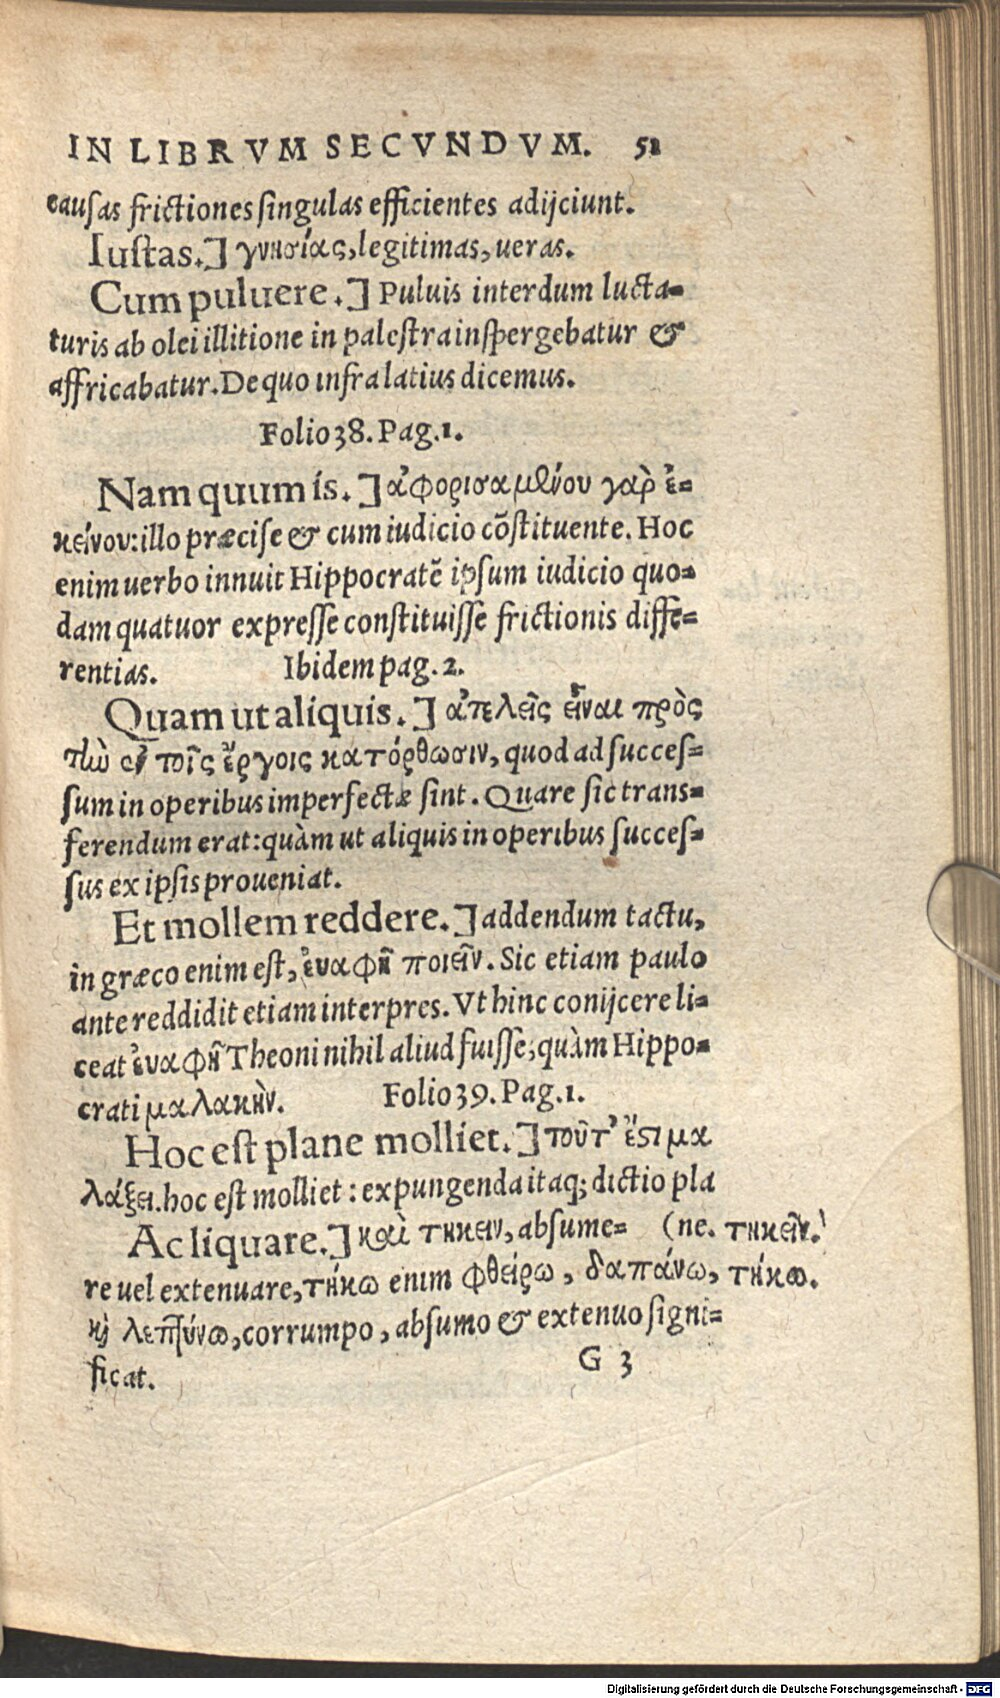 IN LIBRVM SECVNDVM. 51
causas frictiones singulas efficientes adijciunt.
Iustas.] γνησίας, legitimas, ueras.
Cum puluere.] Puluis interdum lucta-
turis ab olei illitione in palestra inspergebatur &
affricabatur. De quo infra latius dicemus.
Folio 38. Pag. 1.
Nam quum is.] ἀφορισαμένου γὰρ ἐ-
κείνου: illo præcise & cum iudicio cõstituente. Hoc
enim uerbo innuit Hippocratẽ ipsum iudicio quo-
dam quatuor expresse constituisse frictionis diffe-
rentias. Ibidem pag. 2.
Quam ut aliquis.] ἀτελεῖς εἶναι πρὸς
τὴν ἐν τοῖς ἔργοις κατόρθωσιν, quod ad succes-
sum in operibus imperfectæ sint. Quare sic trans-
ferendum erat: quàm ut aliquis in operibus succes-
sus ex ipsis proueniat.
Et mollem reddere.] addendum tactu,
in græco enim est, ἐναφῆ ποιεῖν. Sic etiam paulo
ante reddidit etiam interpres. Vt hinc conijcere li-
ceat ἐναφῆ Theoni nihil aliud fuisse, quàm Hippo-
crati μαλακὴν. Folio 39. Pag. 1.
Hoc est plane molliet.] τοῦτ’ ἔστι μα
λάξει. hoc est molliet: expungenda itaq; dictio pla
Ac liquare.] καὶ τήκειν, absume- (ne. τηκεῖν.
re uel extenuare, τήκω enim φθείρω, δαπάνω, τήκω.
καὶ λεπτύνω, corrumpo, absumo & extenuo signi-
ficat. G 3
Digitalisierung gefördert durch die Deutsche Forschungsgemeinschaft - DFG